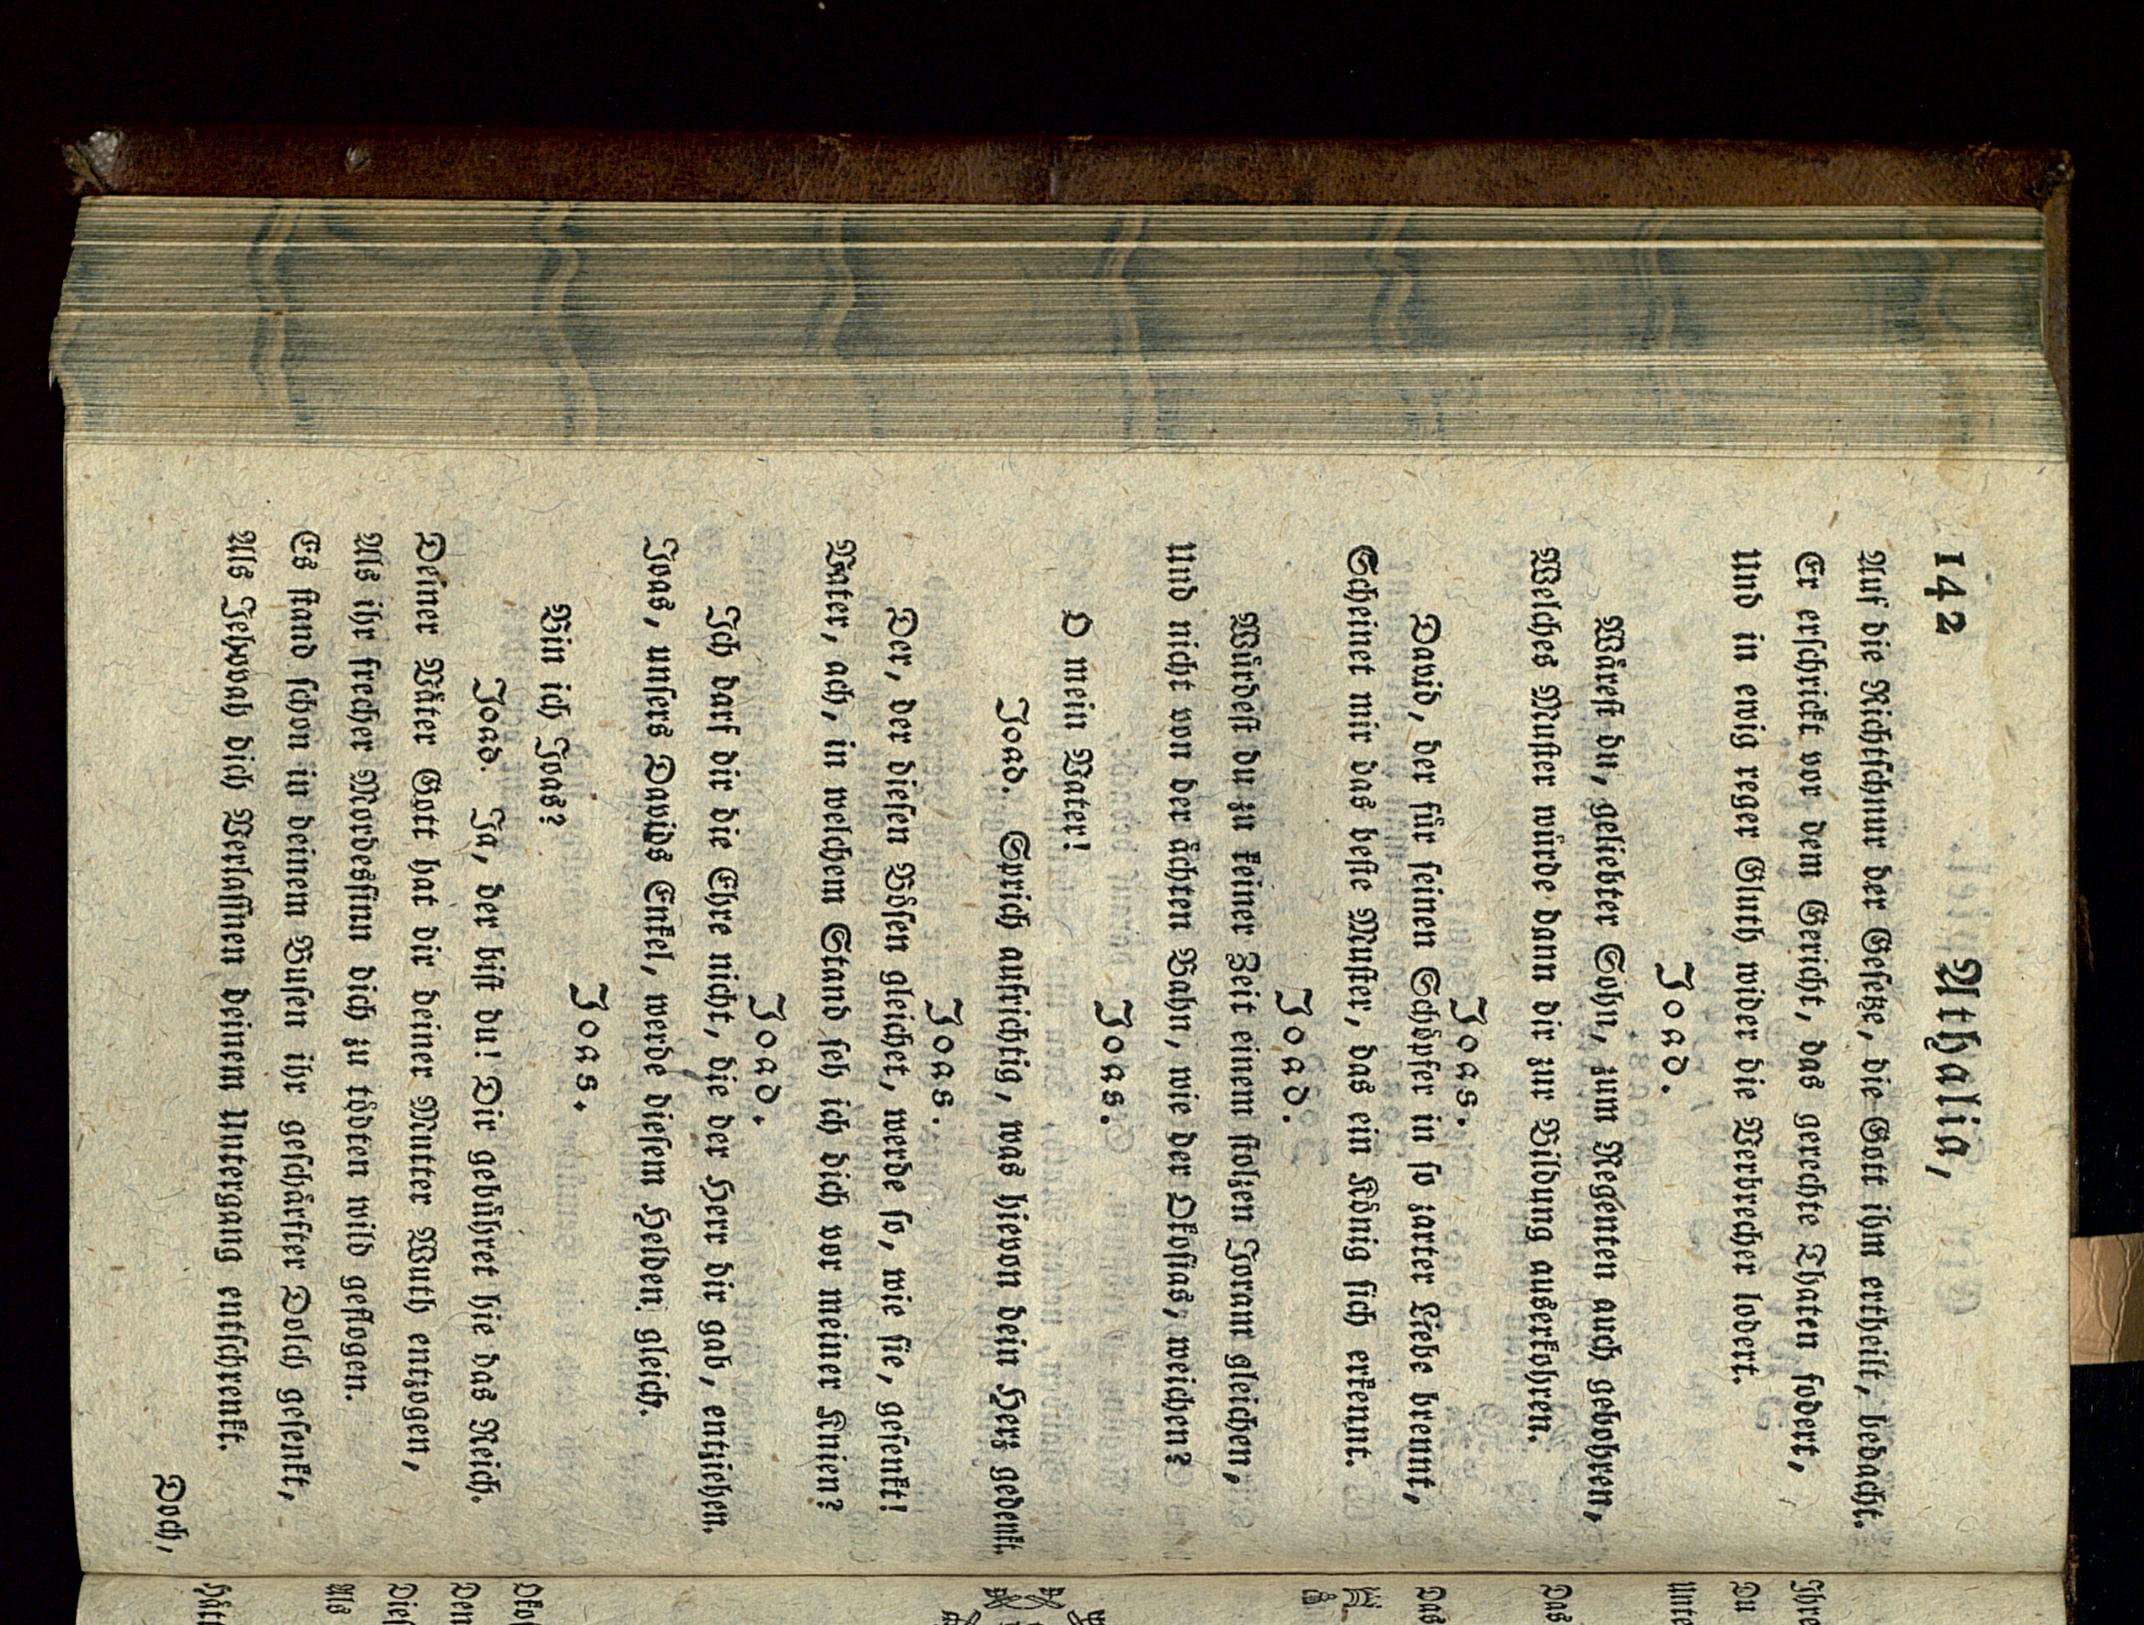 142 Athalia,
Auf die Richtschnur der Gesetze, die Gott ihm ertheilt, bedacht.
Er erschrickt vor dem Gericht, das gerechte Thaten fodert,
Und in ewig reger Gluth wider die Verbrecher lodert.
Joad.
Wärest du, geliebter Sohn, zum Regenten auch gebohren,
Welches Muster würde dann dir zur Bildung auserkohren.
Joas.
David, der für seinen Schöpfer in so zarter Liebe brennt,
Scheinet mir das beste Muster, das ein König sich erkennt.
Joad.
Würdest du zu keiner Zeit einem stolzen Joram gleichen,
Und nicht von der ächten Bahn, wie der Okosias, weichen?
Joas.
O mein Vater!
Joad. Sprich aufrichtig, was hievon dein Herz gedenkt.
Joas.
Der, der diesen Bösen gleichet, werde so, wie sie, gesenkt!
Vater, ach, in welchem Stand seh ich dich vor meiner Knien?
Joad.
Ich darf dir die Ehre nicht, die der Herr dir gab, entziehen.
Joas, unsers Davids Enkel, werde diesem Helden gleich.
Joas.
Bin ich Joas?
Joad. Ja, der bist du! Dir gebühret hie das Reich.
Deiner Väter Gott hat dir deiner Mutter Wuth entzogen,
Als ihr frecher Mordessinn dich zu tödten wild geflogen.
Es stand schon in deinem Busen ihr geschärfter Dolch gesenkt,
Als Jehovah dich Verlassinen deinem Untergang entschrenkt.
Doch,
Ihre
Du
Unte
Das
Das
Okos
Den
Dies
Als
Hätt